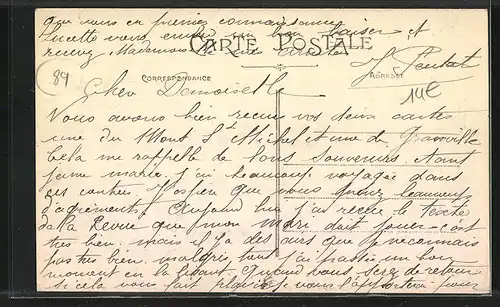 que vous en premier connaissance
Lucette vous envoie un bon baiser et
recevez Mademoiselle
CARTE POSTALE
CORRESPONDANCE
ADRESSE
89
14€
Cher Demoiselle
Vous avons bien recue vos deux cartes
une du Mont St Michel et une de Granville
Cela me rappelle de bons souvenirs. étant
jeune mariée j'ai beaucoup voyagée dans
ces contrées. J'espère que vous avez beaucoup
d'agréments. Aujourd'hui j'ai recue le texte
de la Revue que mon Mari doit jouer c'est
très bien mais il y a des airs que je connais
pas très bien. malgré tout j'ai passée un bon
moment en la lisant. Quand vous serez de retour
si cela vous fait plaisir je vous l'apporterai pour